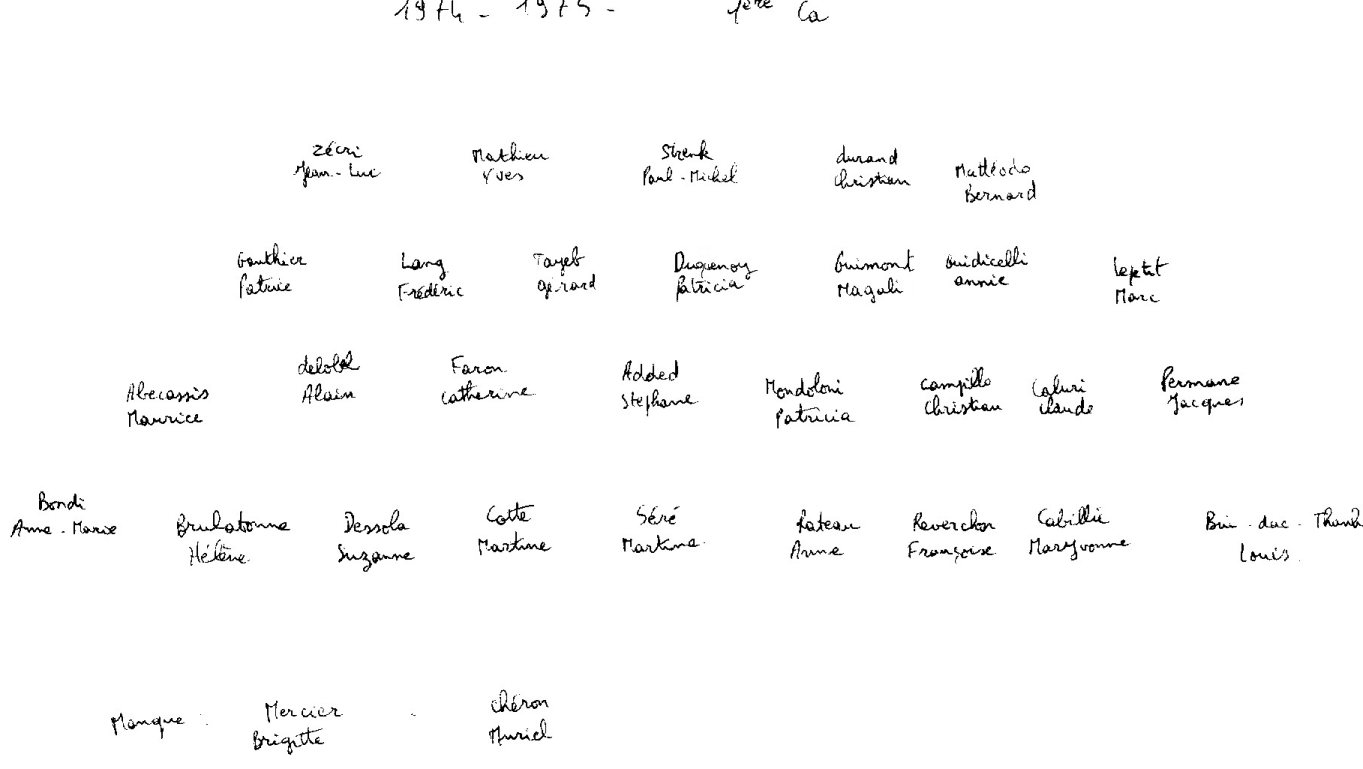 1974 - 1975 - 1ère Ca
Zécri Mathieu Strenk durand Mattéodo
Jean-Luc Yves Paul-Michel Christian Bernard
Gauthier Lang Tayeb Duquenoy Guimont Guidicelli Leptit
Patrice Frédéric Gérard Patricia Magali annie Marc
Abecassis delobel Faron Added Mondoloni Campillo Caluri Permane
Maurice Alain Catherine Stephane Patricia Christian Claude Jacques
Bondi Brulatonne Dessola Cotte Séré Rateau Reverchon Cabillic Bui-duc-Thanh
Anne-Marie Hélène Suzanne Martine Martine Anne Françoise Maryvonne Louis
Manque : Mercier - Chéron
Brigitte Muriel